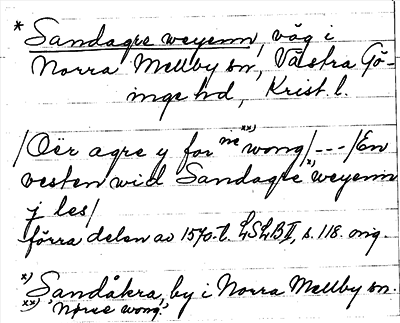 * Sandagre weyenn, väg i
Norra Mellby sn, Västra Gö-
inge hd, Krist. l.
/Oër agre y for ne xx) wong/---/En
vesten wid Sandagre x) weyenn
j les/
förra delen av 1570-t. LSLB II, s. 118. orig.
x) Sandåkra, by i Norra Mellby sn.
xx) 'Nørre wong.'